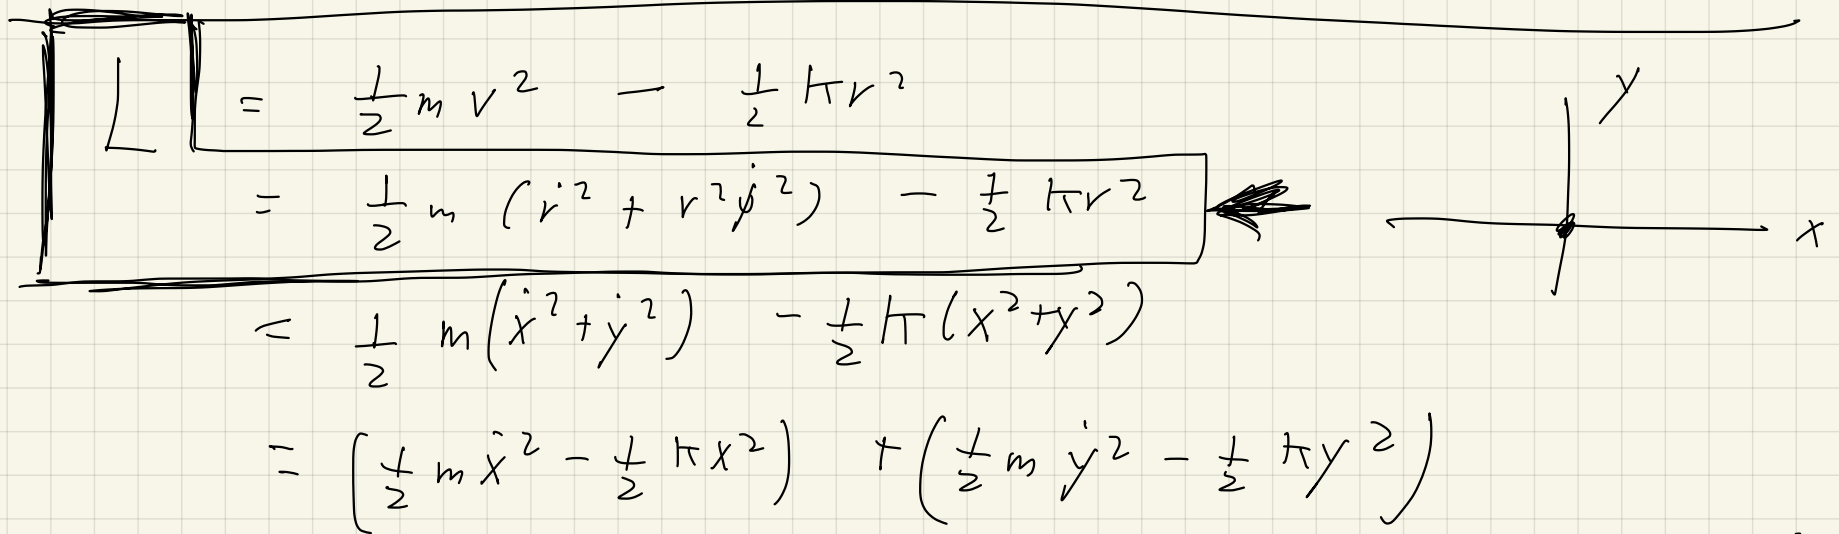 L = 1/2 m v² − 1/2 k r²
= 1/2 m (ṙ² + r² φ̇²) − 1/2 k r²
= 1/2 m (ẋ² + ẏ²) − 1/2 k (x² + y²)
= (1/2 m ẋ² − 1/2 k x²) + (1/2 m ẏ² − 1/2 k y²)
y
x